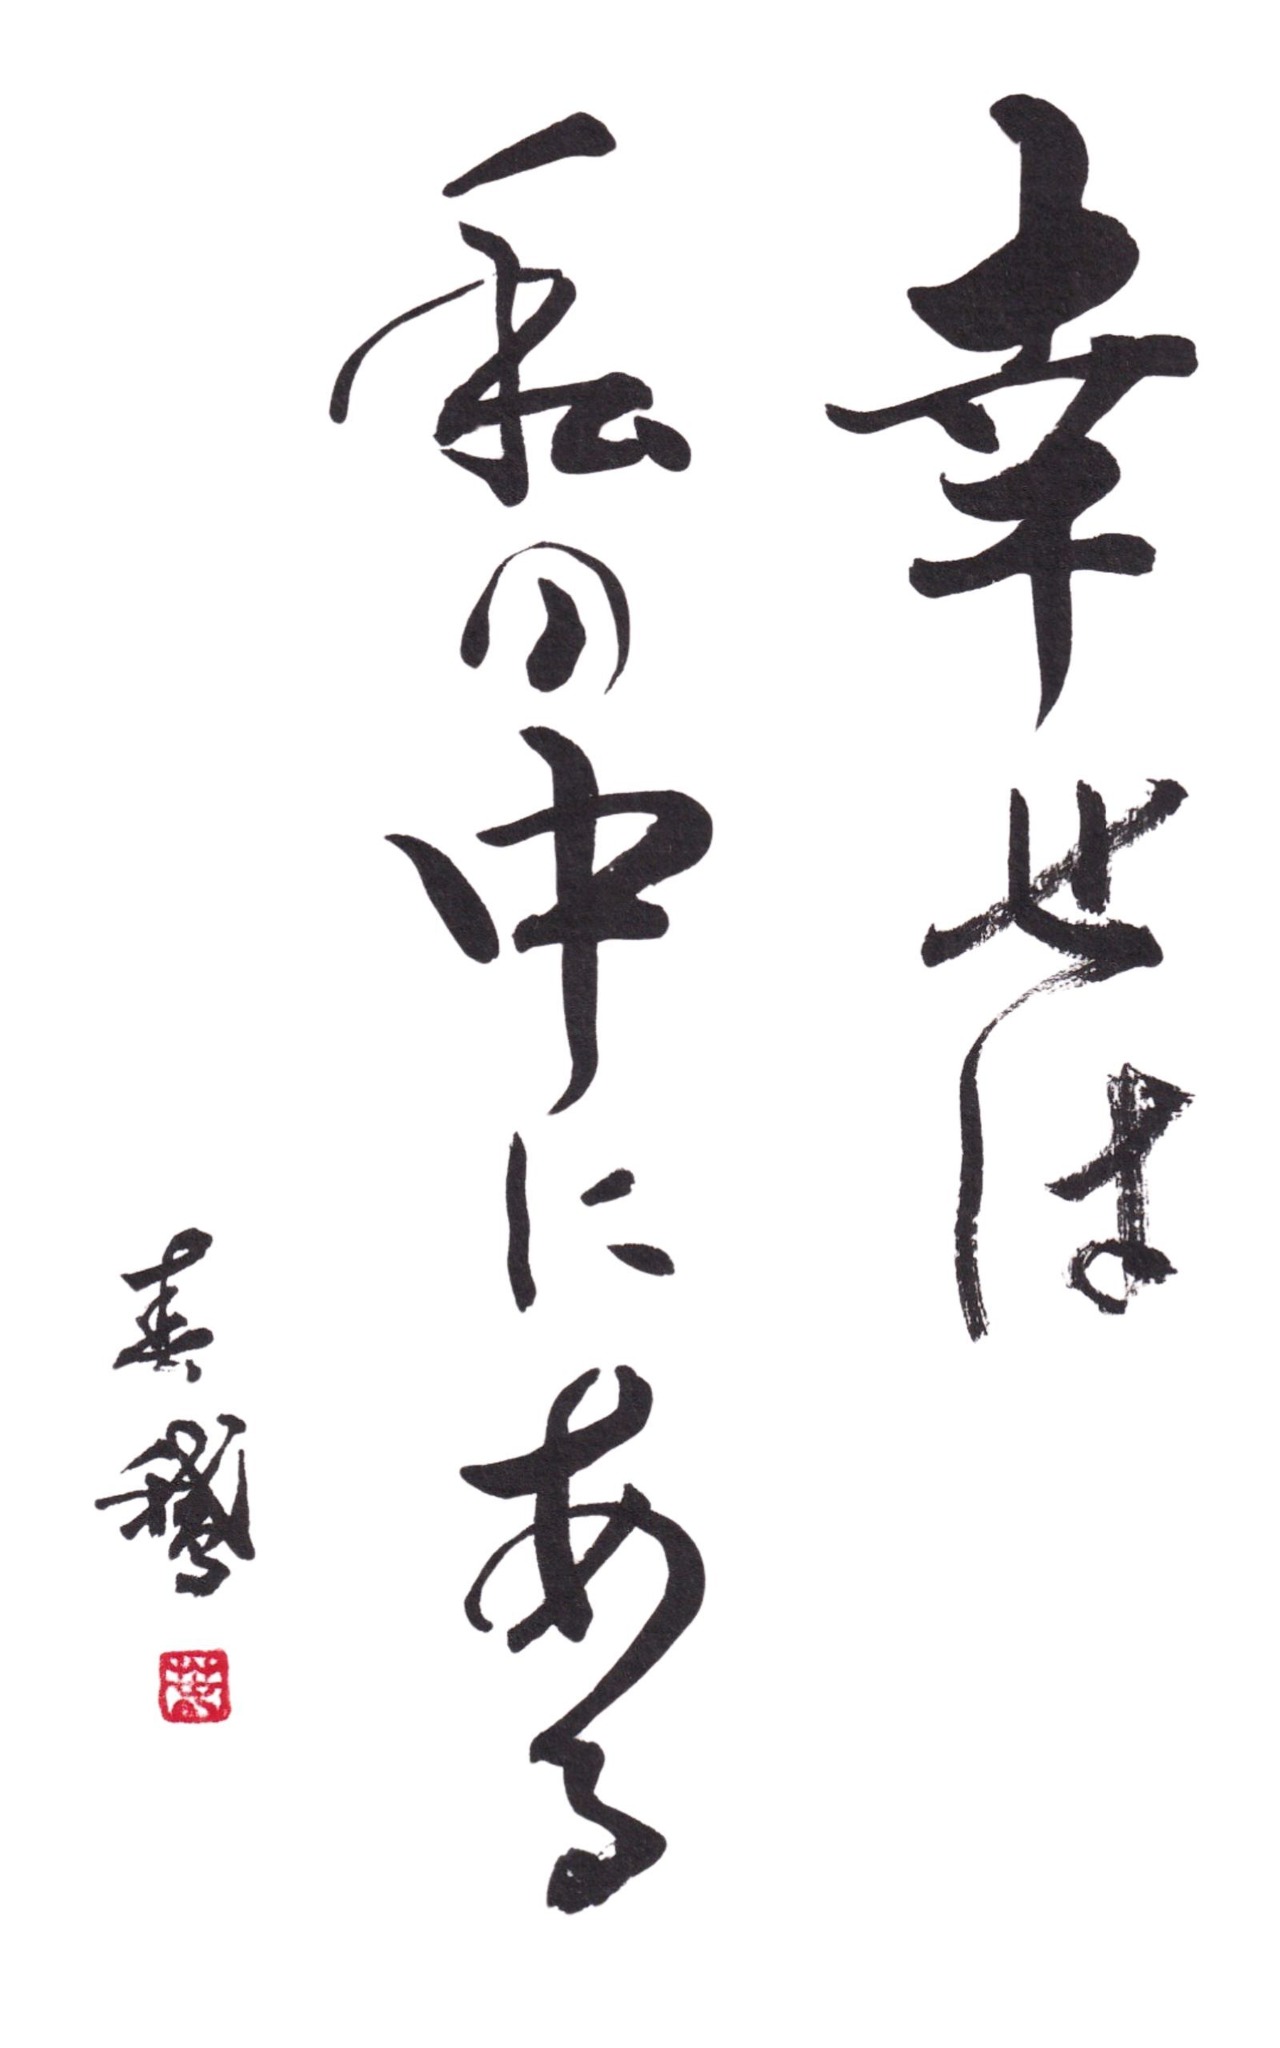 幸せは
私の中にある